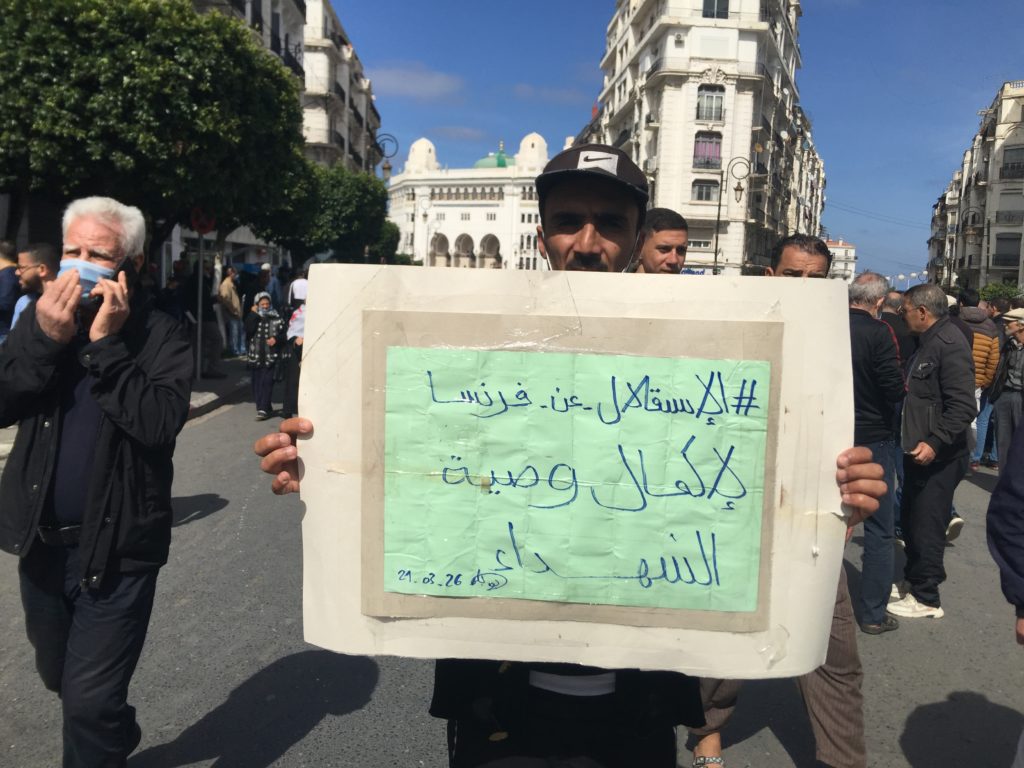 #الإستقلال_عن_فرنسا
لإكمال وصية
الشهداء
21.03.26